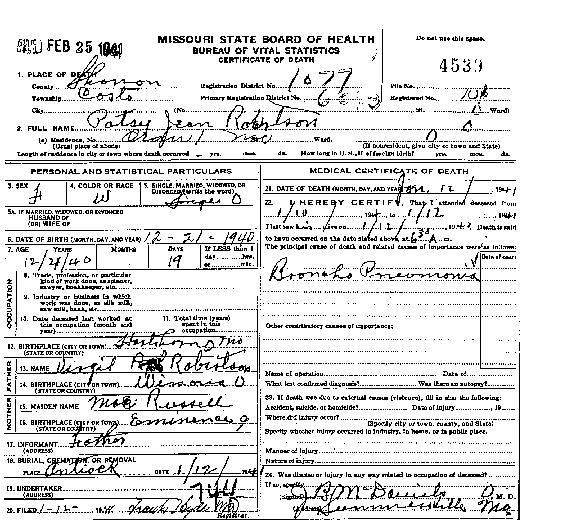 FEB 25 1941
MISSOURI STATE BOARD OF HEALTH
BUREAU OF VITAL STATISTICS
CERTIFICATE OF DEATH
Do not use this space.
4539
1. PLACE OF DEATH
County Shannon Registration District No. 1077 File No.
Township Primary Registration District No. Registered No.
City (No. St. Ward)
2. FULL NAME Patsy Jean Robertson
(a) Residence, No. Mo Ward.
(Usual place of abode) (If nonresident, give city or town and State)
Length of residence in city or town where death occurred yrs. mos. ds. How long in U.S., if of foreign birth? yrs. mos. ds.
PERSONAL AND STATISTICAL PARTICULARS
3. SEX F
4. COLOR OR RACE W
5. SINGLE, MARRIED, WIDOWED, OR DIVORCED (write the word) Single 0
5A. IF MARRIED, WIDOWED, OR DIVORCED
HUSBAND OF
(OR) WIFE OF
6. DATE OF BIRTH (MONTH, DAY, AND YEAR) 12-21-1940
7. AGE YEARS MONTHS DAYS IF LESS than 1
19
OCCUPATION
8. Trade, profession, or particular
kind of work done, as spinner,
sawyer, bookkeeper, etc.
9. Industry or business in which
work was done, as silk mill,
saw mill, bank, etc.
10. Date deceased last worked at
this occupation (month and
year)
11. Total time (years)
spent in this
occupation
12. BIRTHPLACE (CITY OR TOWN) Hartshorn Mo
(STATE OR COUNTRY)
FATHER
13. NAME Virgil Robertson
14. BIRTHPLACE (CITY OR TOWN) Winona 0
(STATE OR COUNTRY)
MOTHER
15. MAIDEN NAME Russell
16. BIRTHPLACE (CITY OR TOWN) Eminence
(STATE OR COUNTRY)
17. INFORMANT Father
(ADDRESS)
18. BURIAL, CREMATION, OR REMOVAL
PLACE Antioch DATE 1/12/1941
19. UNDERTAKER
(ADDRESS)
20. FILED 1-12-1941 Hyde Registrar
MEDICAL CERTIFICATE OF DEATH
21. DATE OF DEATH (MONTH, DAY, AND YEAR) Jan. 12 1941
22. I HEREBY CERTIFY, That I attended deceased from
1/10 1941 to 1/12 1941
I last saw h alive on 1/12 1941 Death is said
to have occurred on the date stated above, at m.
The principal cause of death and related causes of importance were as follows:
Date of onset
Broncho Pneumonia
Other contributory causes of importance:
Name of operation Date of
What test confirmed diagnosis? Was there an autopsy?
23. If death was due to external causes (violence), fill in also the following:
Accident, suicide, or homicide? Date of injury 19
Where did injury occur?
(Specify city or town, county, and State)
Specify whether injury occurred in industry, in home, or in public place.
Manner of injury
Nature of injury
24. Was disease or injury in any way related to occupation of deceased?
If so, specify
(Signed) McDaniels M. D.
Summersville Mo